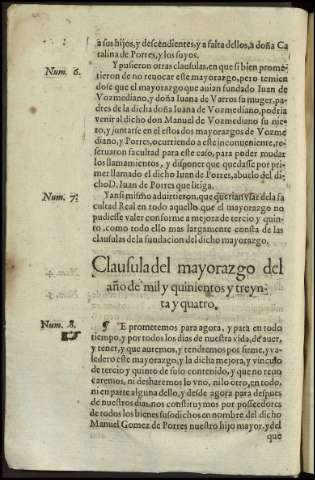 à sus hijos, y descendientes, y a falta dellos, à doña Ca
talina de Porres, y los suyos.
Num. 6.
Y pusieron otras clausulas, en que si bien prome-
tieron de no reuocar este mayorazgo, pero temien
dose que el mayorazgo que auian fundado Iuan de
Vozmediano, y doña Iuana de Varros su muger, pa-
dres de la dicha doña Iuana de Vozmediano, podria
venir al dicho don Manuel de Vozmediano su nie-
to, y juntarse en el estos dos mayorazgos de Vozme
diano, y Porres, ocurriendo a este inconueniente, re-
seruaron facultad para este caso, para poder mudar
los llamamientos, y disponer que quedasse por pri-
mer llamado el dicho Iuan de Porres, abuelo del di-
cho D. Iuan de Porres que litiga.
Num. 7.
Y ansi mismo aduirtieron, que querian vsar de la fa
cultad Real en todo aquello que el mayorazgo no
pudiesse valer conforme a mejora de tercio y quin-
to. como todo ello mas largamente consta de las
clausulas de la fundacion del dicho mayorazgo.
Clausula del mayorazgo del
año de mil y quinientos y treyn-
ta y quatro.
Num. 8.
¶ E prometemos para agora, y para en todo
tiempo, y por todos los dias de nuestra vida, de auer,
y tener, y que auremos, y tendremos por firme, y va-
ledero este mayorazgo, y la dicha mejora, y vinculo
de tercio y quinto de suso contenido, y que no reuo
caremos, ni desharemos lo vno, ni lo otro, en todo,
ni en parte alguna dello, y desde agora para despues
de nuestros dias, nos constituymos por posseedores
de todos los bienes susodichos en nombre del dicho
Manuel Gomez de Porres nuestro hijo mayor, y del
que